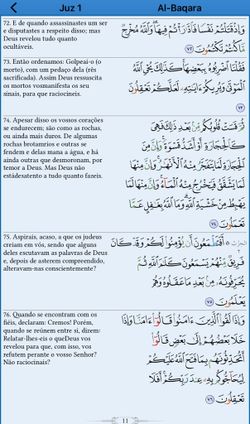 Juz 1
Al-Baqara
72. E de quando assassinastes um ser
e disputastes a respeito disso; mas
Deus revelou tudo quanto
ocultáveis.
وَإِذْ قَتَلْتُمْ نَفْسًا فَٱدَّٰرَْٰٔتُمْ فِيهَا ۖ وَٱللَّهُ مُخْرِجٌ
مَّا كُنتُمْ تَكْتُمُونَ ٧٢
73. Então ordenamos: Golpeai-o (o
morto), com um pedaço dela (rês
sacrificada). Assim Deus ressuscita
os mortos vosmanifesta os seu
sinais, para que raciocineis.
فَقُلْنَا ٱضْرِبُوهُ بِبَعْضِهَا ۚ كَذَٰلِكَ يُحْىِ ٱللَّهُ
ٱلْمَوْتَىٰ وَيُرِيكُمْ ءَايَٰتِهِۦ لَعَلَّكُمْ تَعْقِلُونَ
٧٣
74. Apesar disso os vossos corações
se endurecem; são como as rochas,
ou ainda mais duros. De algumas
rochas brotamrios e outras se
fendem e delas mana a água, e há
ainda outras que desmoronam, por
temor a Deus. Mas Deus não
estádesatento a tudo quanto fazeis.
ثُمَّ قَسَتْ قُلُوبُكُم مِّنۢ بَعْدِ ذَٰلِكَ فَهِىَ
كَٱلْحِجَارَةِ أَوْ أَشَدُّ قَسْوَةً ۚ وَإِنَّ مِنَ
ٱلْحِجَارَةِ لَمَا يَتَفَجَّرُ مِنْهُ ٱلْأَنْهَٰرُ ۚ وَإِنَّ مِنْهَا
لَمَا يَشَّقَّقُ فَيَخْرُجُ مِنْهُ ٱلْمَآءُ ۚ وَإِنَّ مِنْهَا لَمَا
يَهْبِطُ مِنْ خَشْيَةِ ٱللَّهِ ۗ وَمَا ٱللَّهُ بِغَٰفِلٍ عَمَّا
تَعْمَلُونَ ٧٤
75. Aspirais, acaso, a que os judeus
creiam em vós, sendo que alguns
deles escutavam as palavras de Deus
e, depois de aterem compreendido,
alteravam-nas conscientemente?
أَفَتَطْمَعُونَ أَن يُؤْمِنُوا۟ لَكُمْ وَقَدْ كَانَ
فَرِيقٌ مِّنْهُمْ يَسْمَعُونَ كَلَٰمَ ٱللَّهِ ثُمَّ
يُحَرِّفُونَهُۥ مِنۢ بَعْدِ مَا عَقَلُوهُ وَهُمْ
يَعْلَمُونَ ٧٥
76. Quando se encontram com os
fiéis, declaram: Cremos! Porém,
quando se reúnem entre si, dizem:
Relatar-lhes-eis o queDeus vos
revelou para que, com isso, vos
refutem perante o vosso Senhor?
Não raciocinais?
وَإِذَا لَقُوا۟ ٱلَّذِينَ ءَامَنُوا۟ قَالُوٓا۟ ءَامَنَّا وَإِذَا
خَلَا بَعْضُهُمْ إِلَىٰ بَعْضٍ قَالُوٓا۟
أَتُحَدِّثُونَهُم بِمَا فَتَحَ ٱللَّهُ عَلَيْكُمْ
لِيُحَآجُّوكُم بِهِۦ عِندَ رَبِّكُمْ ۚ أَفَلَا
تَعْقِلُونَ ٧٦
11